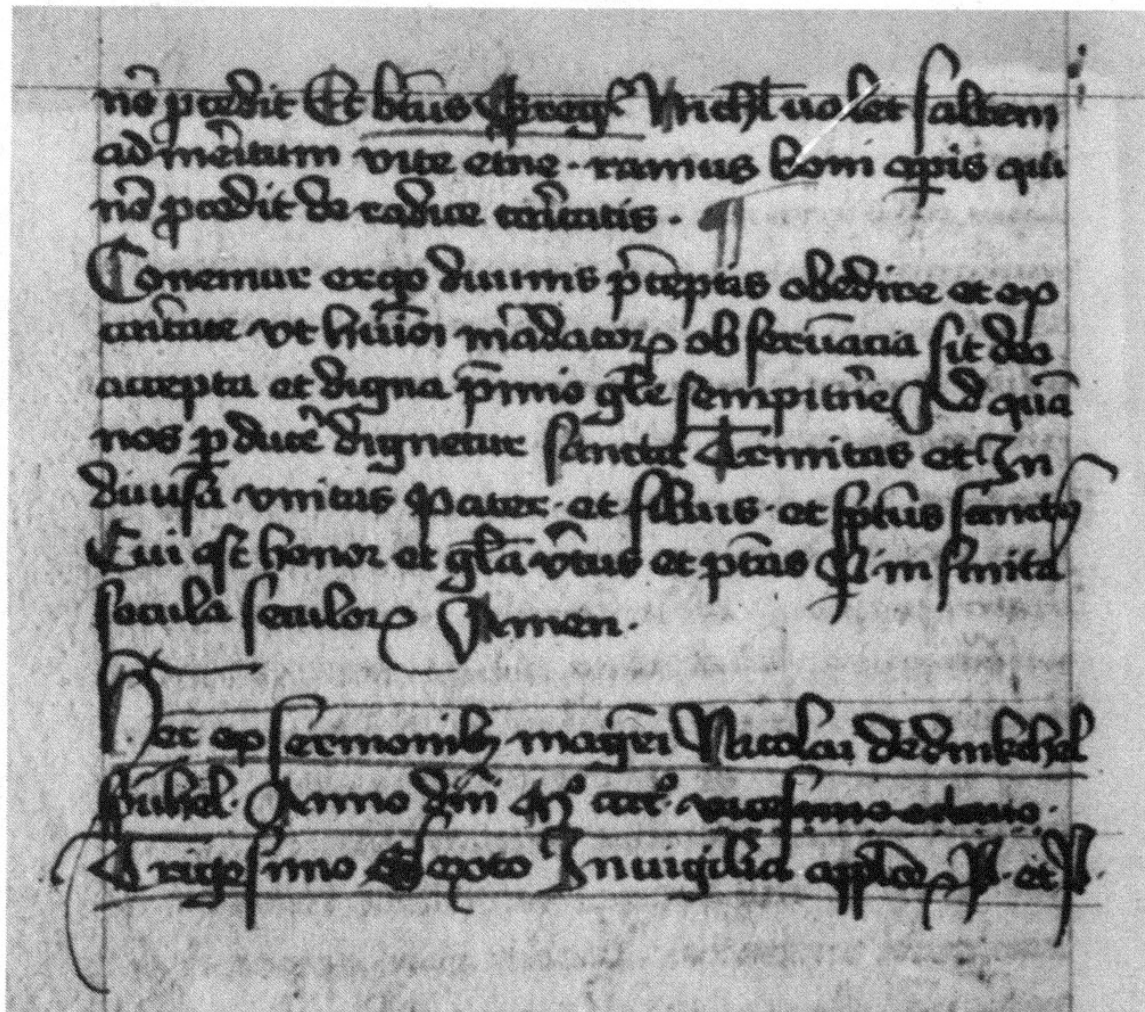 nō ꝓcedit Et btūs Greg⁹ Nichl̄ ualet saltem
ad meritum vite etn̄e · ramus boni oꝑis qui
nō ꝓcedit de radice caritatis · ¶
Conemur ergo diuinis p̄ceptis obedire et ex
caritate vt hui⁹mōi mādatoꝝ obseruācia sit deo
accepta et digna p̄mio gl̄e sempitn̄e Ad quā
nos ꝑducẽ dignetur sancta Trinitas et In
diuisa vnitas Pater · et filius · et sp̄us sanctꝰ
Cui est honor et gl̄a v̄tus et p̄tas ꝑ infinita
secula seculoꝝ Amen ·
Hec ex sermonibꝫ magr̄i Nicolai de dinkchel
Anno dn̄i Mº ccccº vicesimo octauo ·
Trigesimo Sexto In vigilia apl̄oꝝ P · et P ·